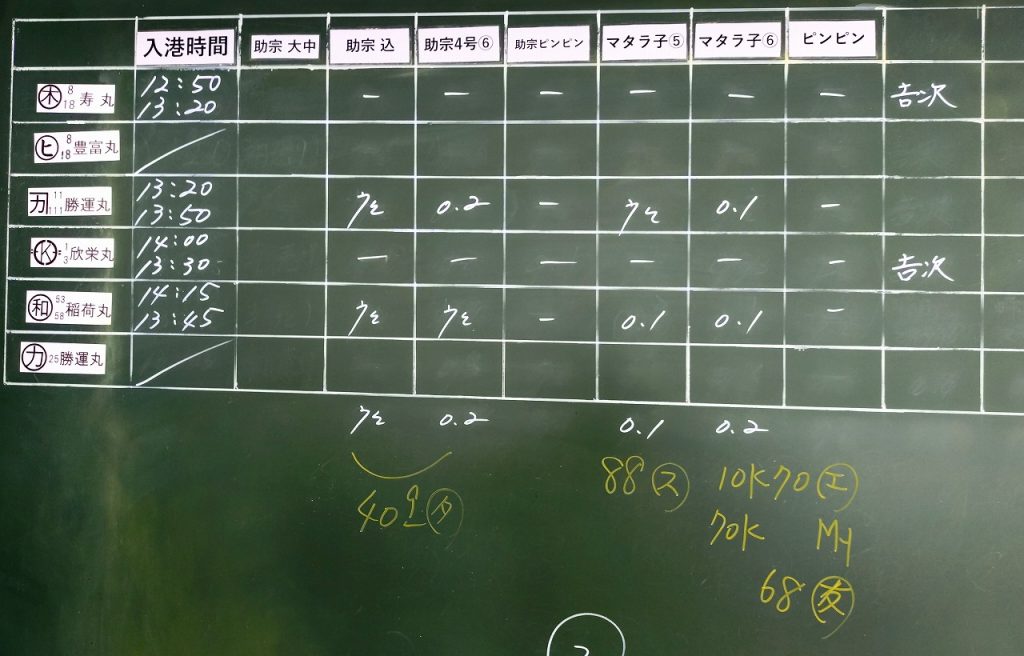 入港時間 助宗 大中 助宗 込 助宗4号⑥ 助宗ピンピン マタラ子⑤ マタラ子⑥ ピンピン
㊍ 8 18 寿丸 12:50 13:20 ー ー ー ー ー ー 吉次
ヒ 8 18 豊富丸
カ 11 111 勝運丸 13:20 13:50 ケ 0.2 ー ケ 0.1 ー
K 1 3 欣栄丸 14:00 13:30 ー ー ー ー ー ー 吉次
和 53 58 稲荷丸 14:15 13:45 ケ ケ ー 0.1 0.1 ー
カ 25 勝運丸
ケ 0.2 0.1 0.2
40 タ 88 ス 10K70 エ
70K My
68 友